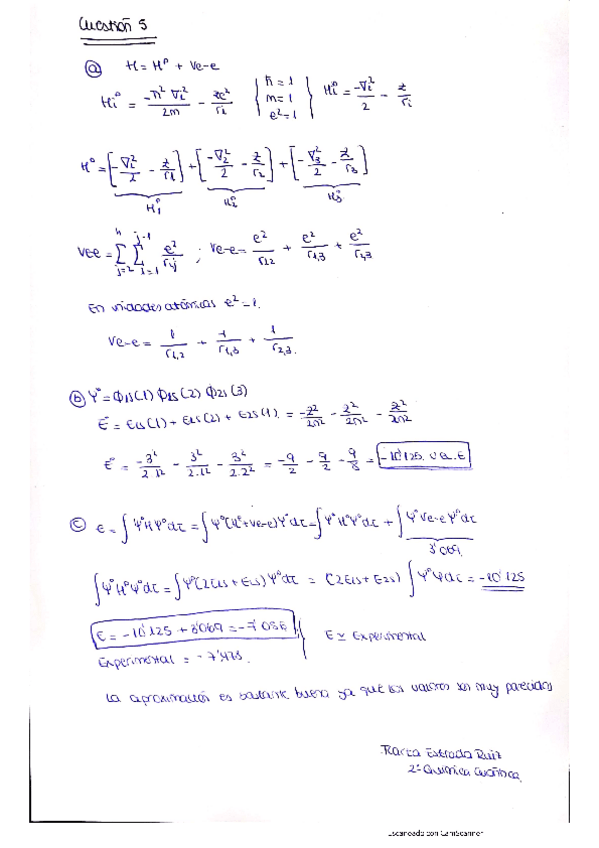 Cuestión 5
(a) H = H⁰ + Ve-e
Hi⁰ = -ħ² ∇i²/2m - ze²/ri { ħ = 1 m = 1 e² = 1 } Hi⁰ = -∇i²/2 - z/ri
H⁰ = [-∇1²/2 - z/r1] + [-∇2²/2 - z/r2] + [-∇3²/2 - z/r3]
H1⁰ H2⁰ H3⁰
Ve-e = Σ(j=2)^n Σ(i=1)^(j-1) e²/rij ; Ve-e = e²/r1,2 + e²/r1,3 + e²/r2,3
En unidades atómicas e² = 1.
Ve-e = 1/r1,2 + 1/r1,3 + 1/r2,3.
(b) Ψ⁰ = Φ1s(1) Φ1s(2) Φ2s(3)
E⁰ = E1s(1) + E1s(2) + E2s(1) = -z²/2n² - z²/2n² - z²/2n²
E⁰ = -3²/2·1² - 3²/2·1² - 3²/2·2² = -9/2 - 9/2 - 9/8 = -10'125 u.a. E
(c) E = ∫Ψ⁰HΨ⁰dτ = ∫Ψ⁰(H⁰+Ve-e)Ψ⁰dτ = ∫Ψ⁰H⁰Ψ⁰dτ + ∫Ψ⁰Ve-eΨ⁰dτ
3'069
∫Ψ⁰H⁰Ψ⁰dτ = ∫Ψ⁰(2E1s + E2s)Ψ⁰dτ = (2E1s + E2s) ∫Ψ⁰Ψ⁰dτ = -10'125
E = -10'125 + 3'069 = -7'056 } E ≃ Experimental
Experimental = -7'478.
La aproximación es bastante buena ya que los valores son muy parecidos
Estrada Ruiz
2º Química Cuántica
Escaneado con CamScanner